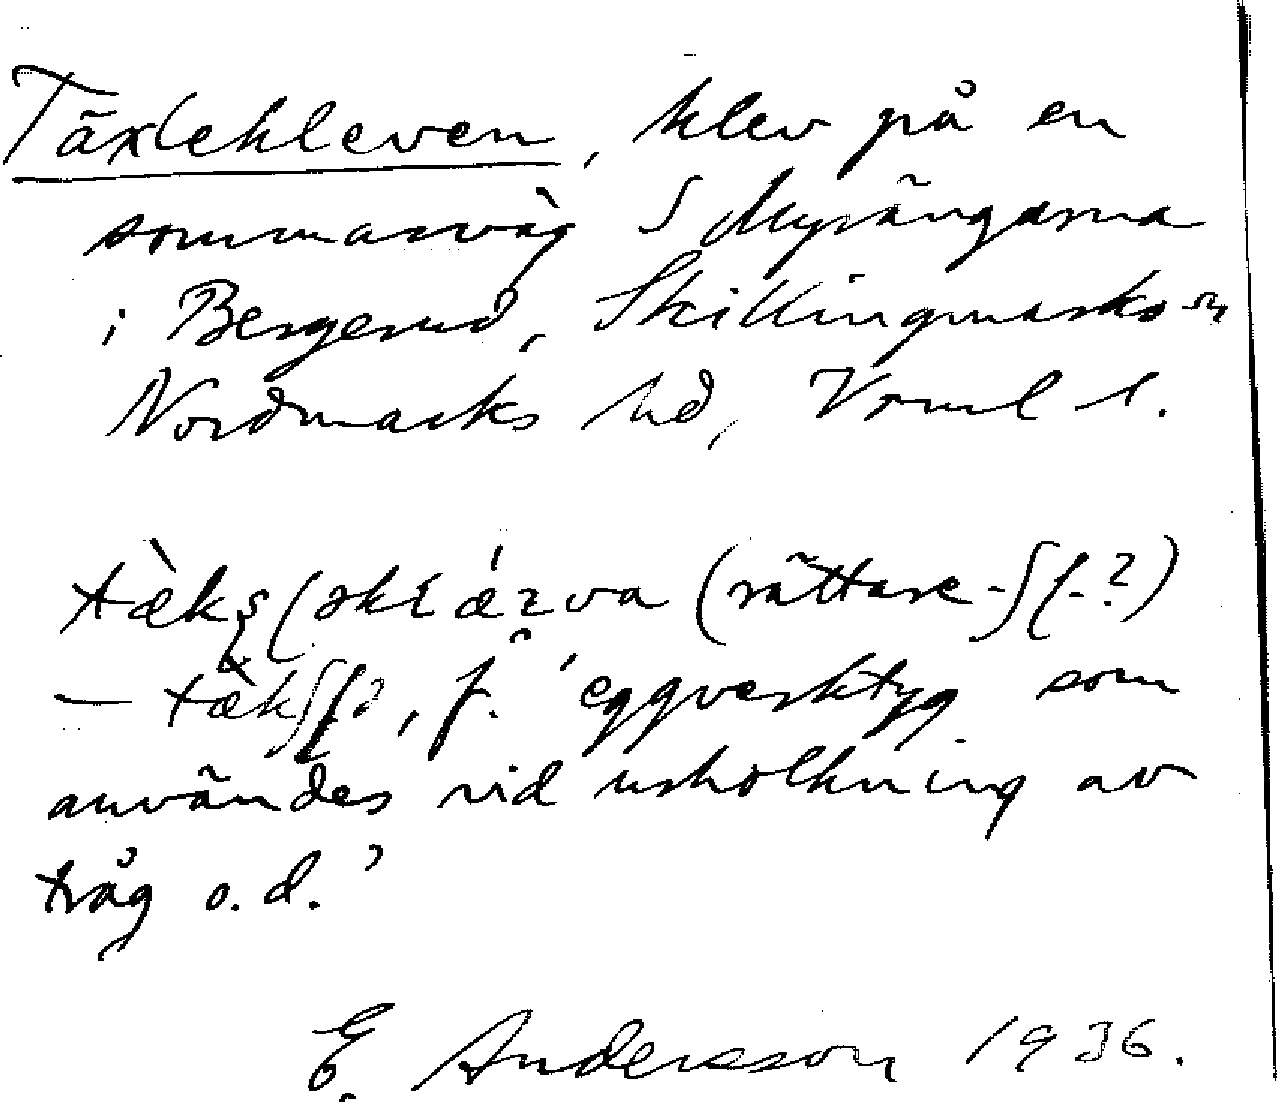 Täxlekleven, klev på en
sommarväg S Myrängarna
i Bergerud, Skillingmarks sn,
Nordmarks hd, Värml l.
(rättare -ʃl-?)
— f. 'eggverktyg som
användes vid urholkning av
tråg o.d.'
E. Andersson 1936.